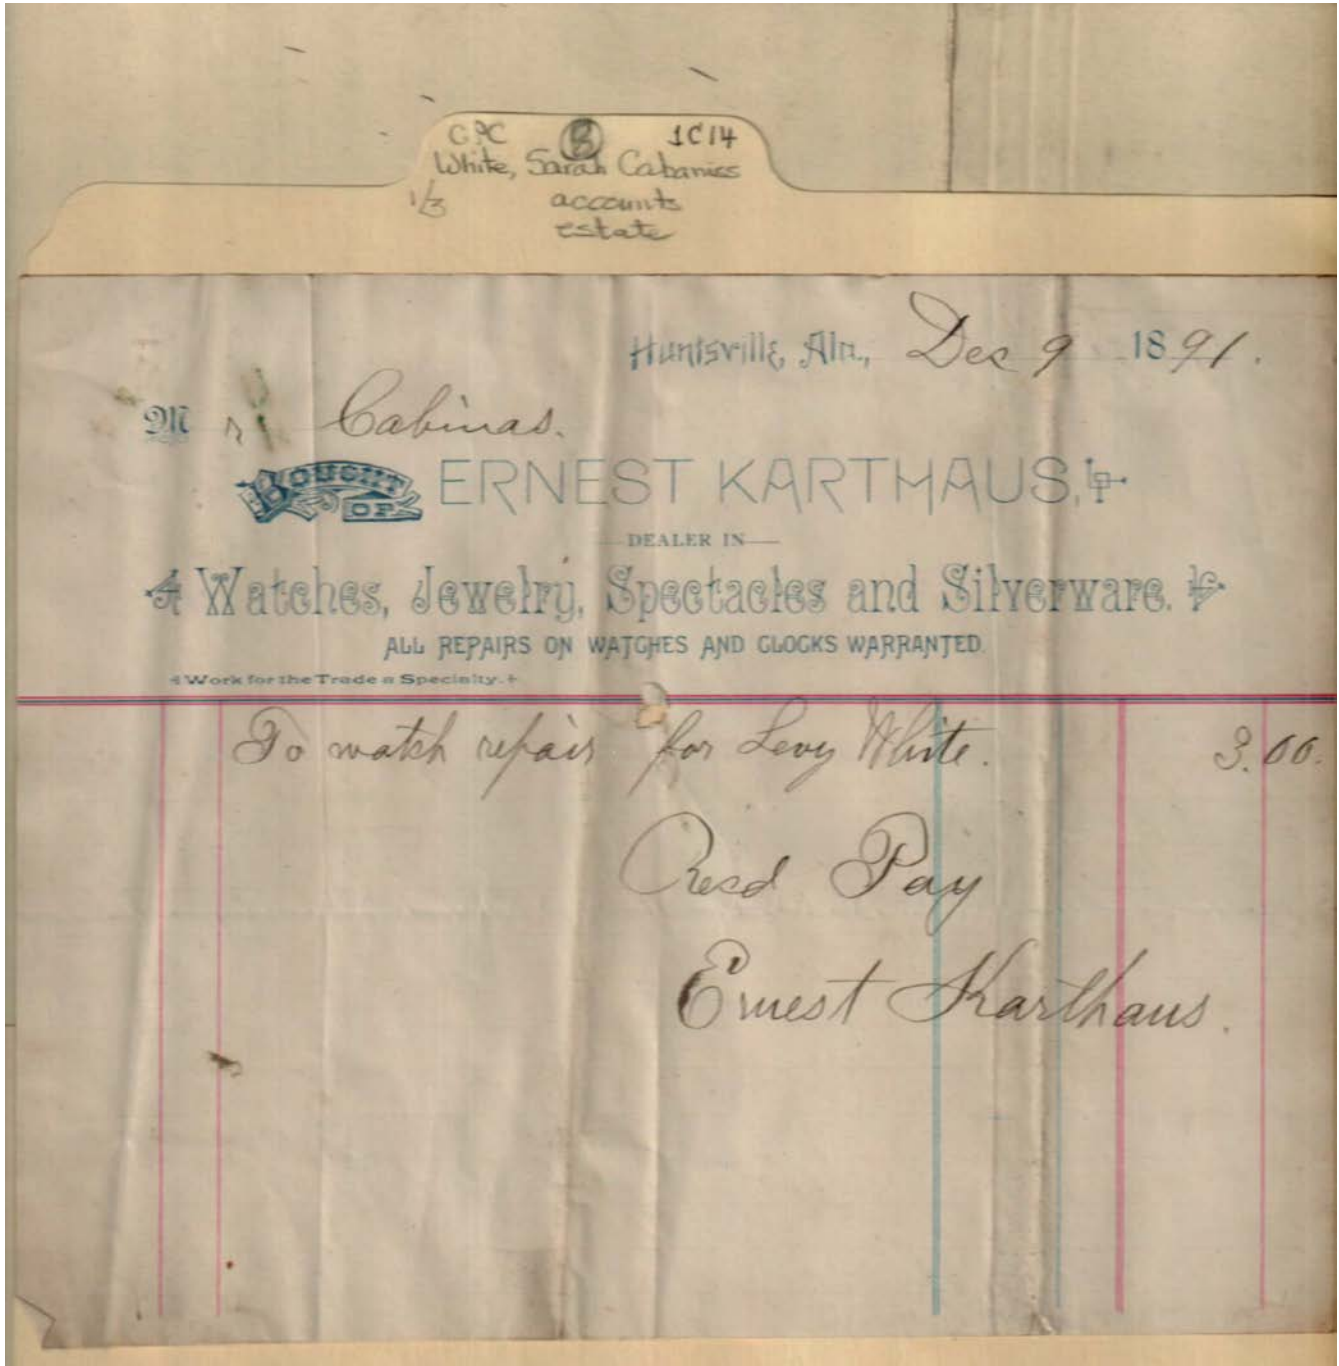 GPC B 1C14
White, Sarah Cabaniss
1/3 accounts
estate
Huntsville, Ala., Dec 9 1891.
Mr Cabinas.
BOUGHT OF ERNEST KARTHAUS,
DEALER IN
Watches, Jewelry, Spectacles and Silverware.
ALL REPAIRS ON WATCHES AND CLOCKS WARRANTED.
Work for the Trade a Specialty.
To watch repair for Levy White. 3.00.
Recd Pay
Ernest Karthaus.